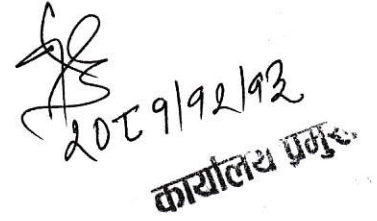 २०८१|१२|१३
कार्यालय प्रमुख